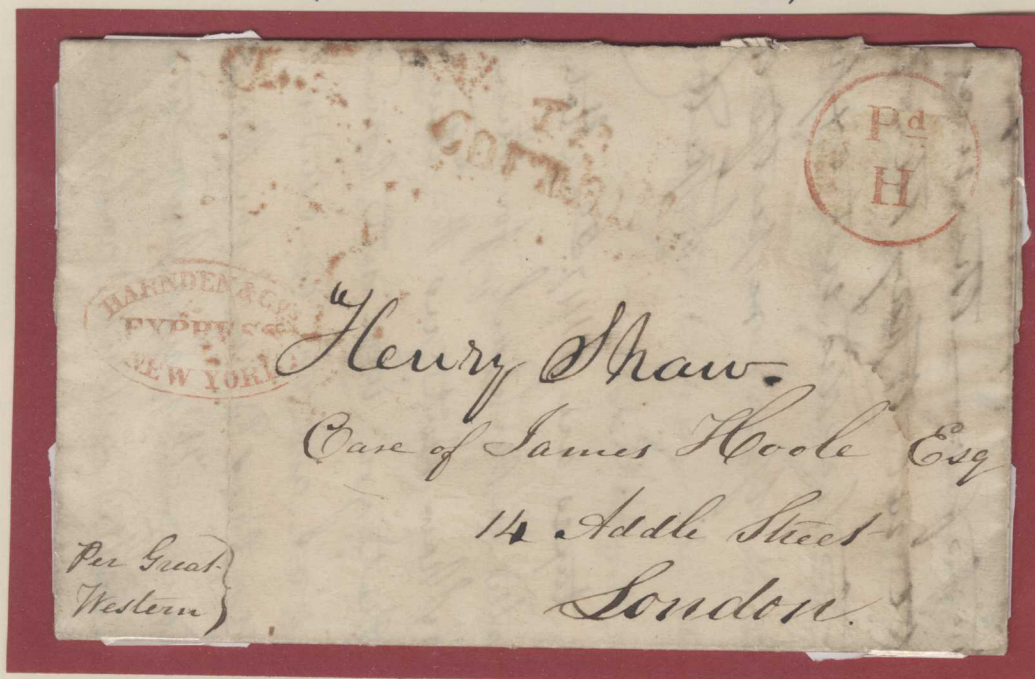 Pd
H
HARNDEN & Co's
EXPRESS
NEW YORK
Henry Shaw.
Care of James Hoole Esq
14 Addle Street
London.
Per Great
Western